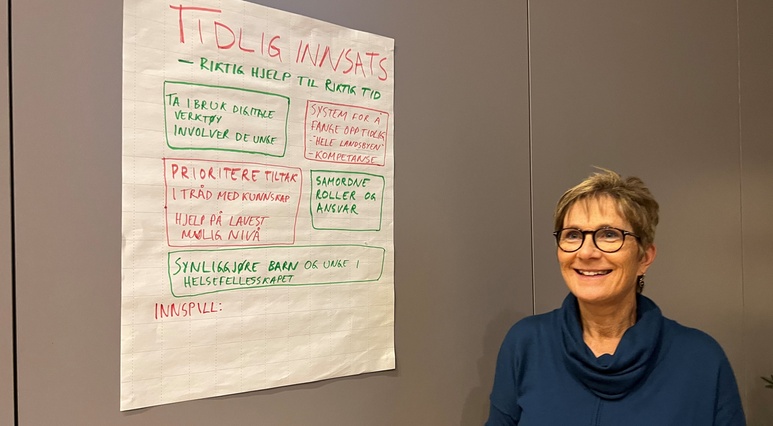 TIDLIG INNSATS
— RIKTIG HJELP TIL RIKTIG TID
TA I BRUK DIGITALE
VERKTØY
INVOLVER DE UNGE
SYSTEM FOR Å
FANGE OPP TIDLIG
- "HELE LANDSBYEN"
- KOMPETANSE
PRIORITERE TILTAK
I TRÅD MED KUNNSKAP
HJELP PÅ LAVEST
MULIG NIVÅ
SAMORDNE
ROLLER OG
ANSVAR
SYNLIGGJØRE BARN OG UNGE I
HELSEFELLESSKAPET
INNSPILL: